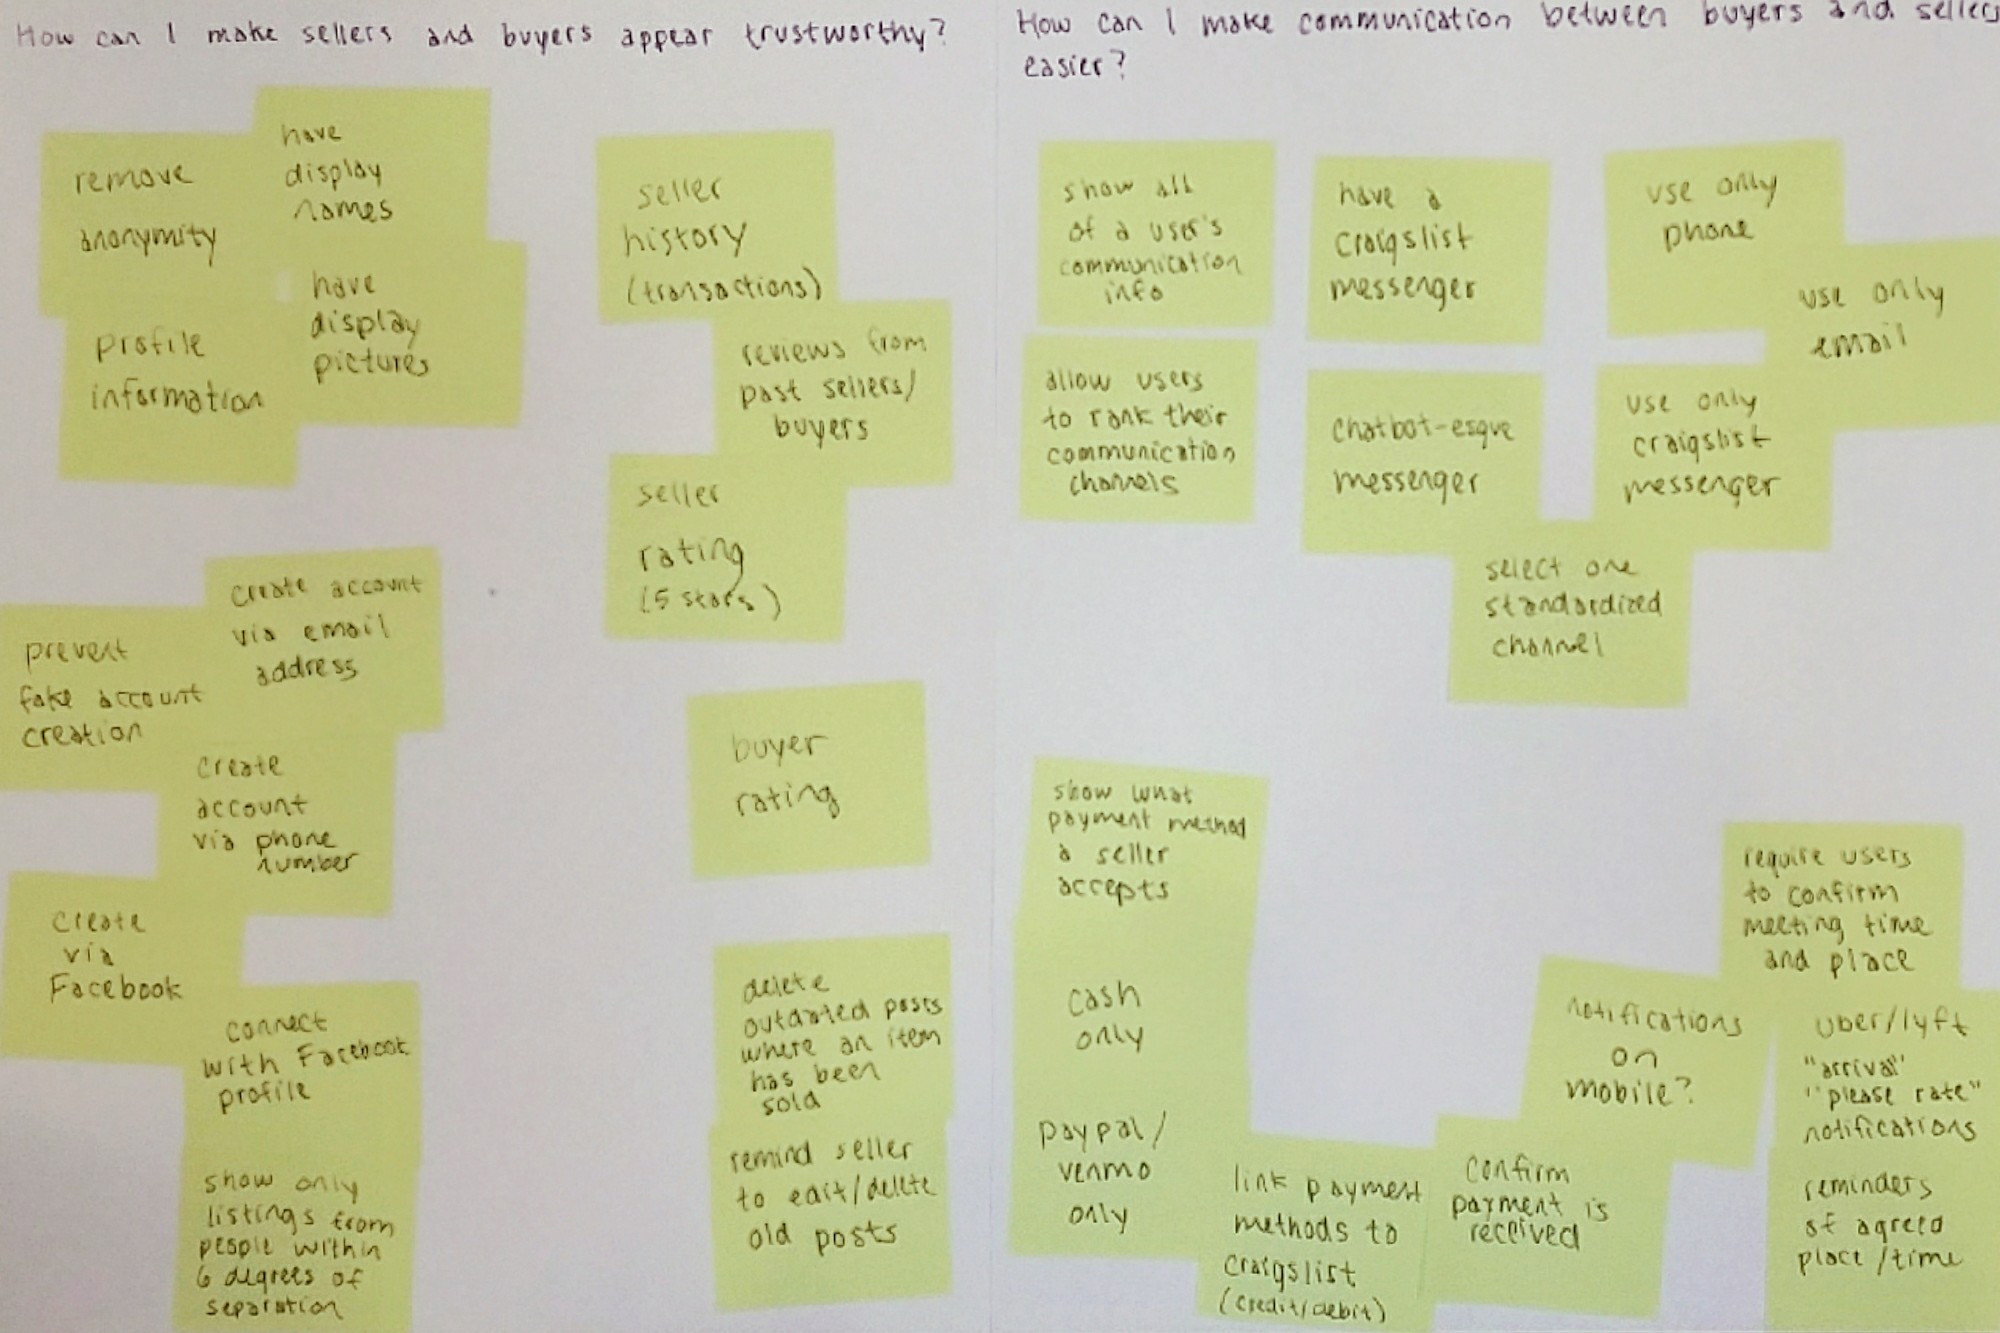 How can I make sellers and buyers appear trustworthy?
remove
anonymity
have
display
names
profile
information
have
display
pictures
seller
history
(transactions)
reviews from
past sellers/
buyers
seller
rating
(5 stars)
prevent
fake account
creation
create account
via email
address
create
account
via phone
number
create
via
Facebook
connect
with Facebook
profile
show only
listings from
people within
6 degrees of
separation
buyer
rating
delete
outdated posts
where an item
has been
sold
remind seller
to edit/delete
old posts
How can I make communication between buyers and sellers
easier?
show all
of a user's
communication
info
have a
craigslist
messenger
use only
phone
use only
email
allow users
to rank their
communication
channels
chatbot-esque
messenger
use only
craigslist
messenger
select one
standardized
channel
show what
payment method
a seller
accepts
cash
only
paypal/
venmo
only
link payment
methods to
craigslist
(credit/debit)
confirm
payment is
received
notifications
on
mobile?
require users
to confirm
meeting time
and place
uber/lyft
"arrival"
"please rate"
notifications
reminders
of agreed
place/time